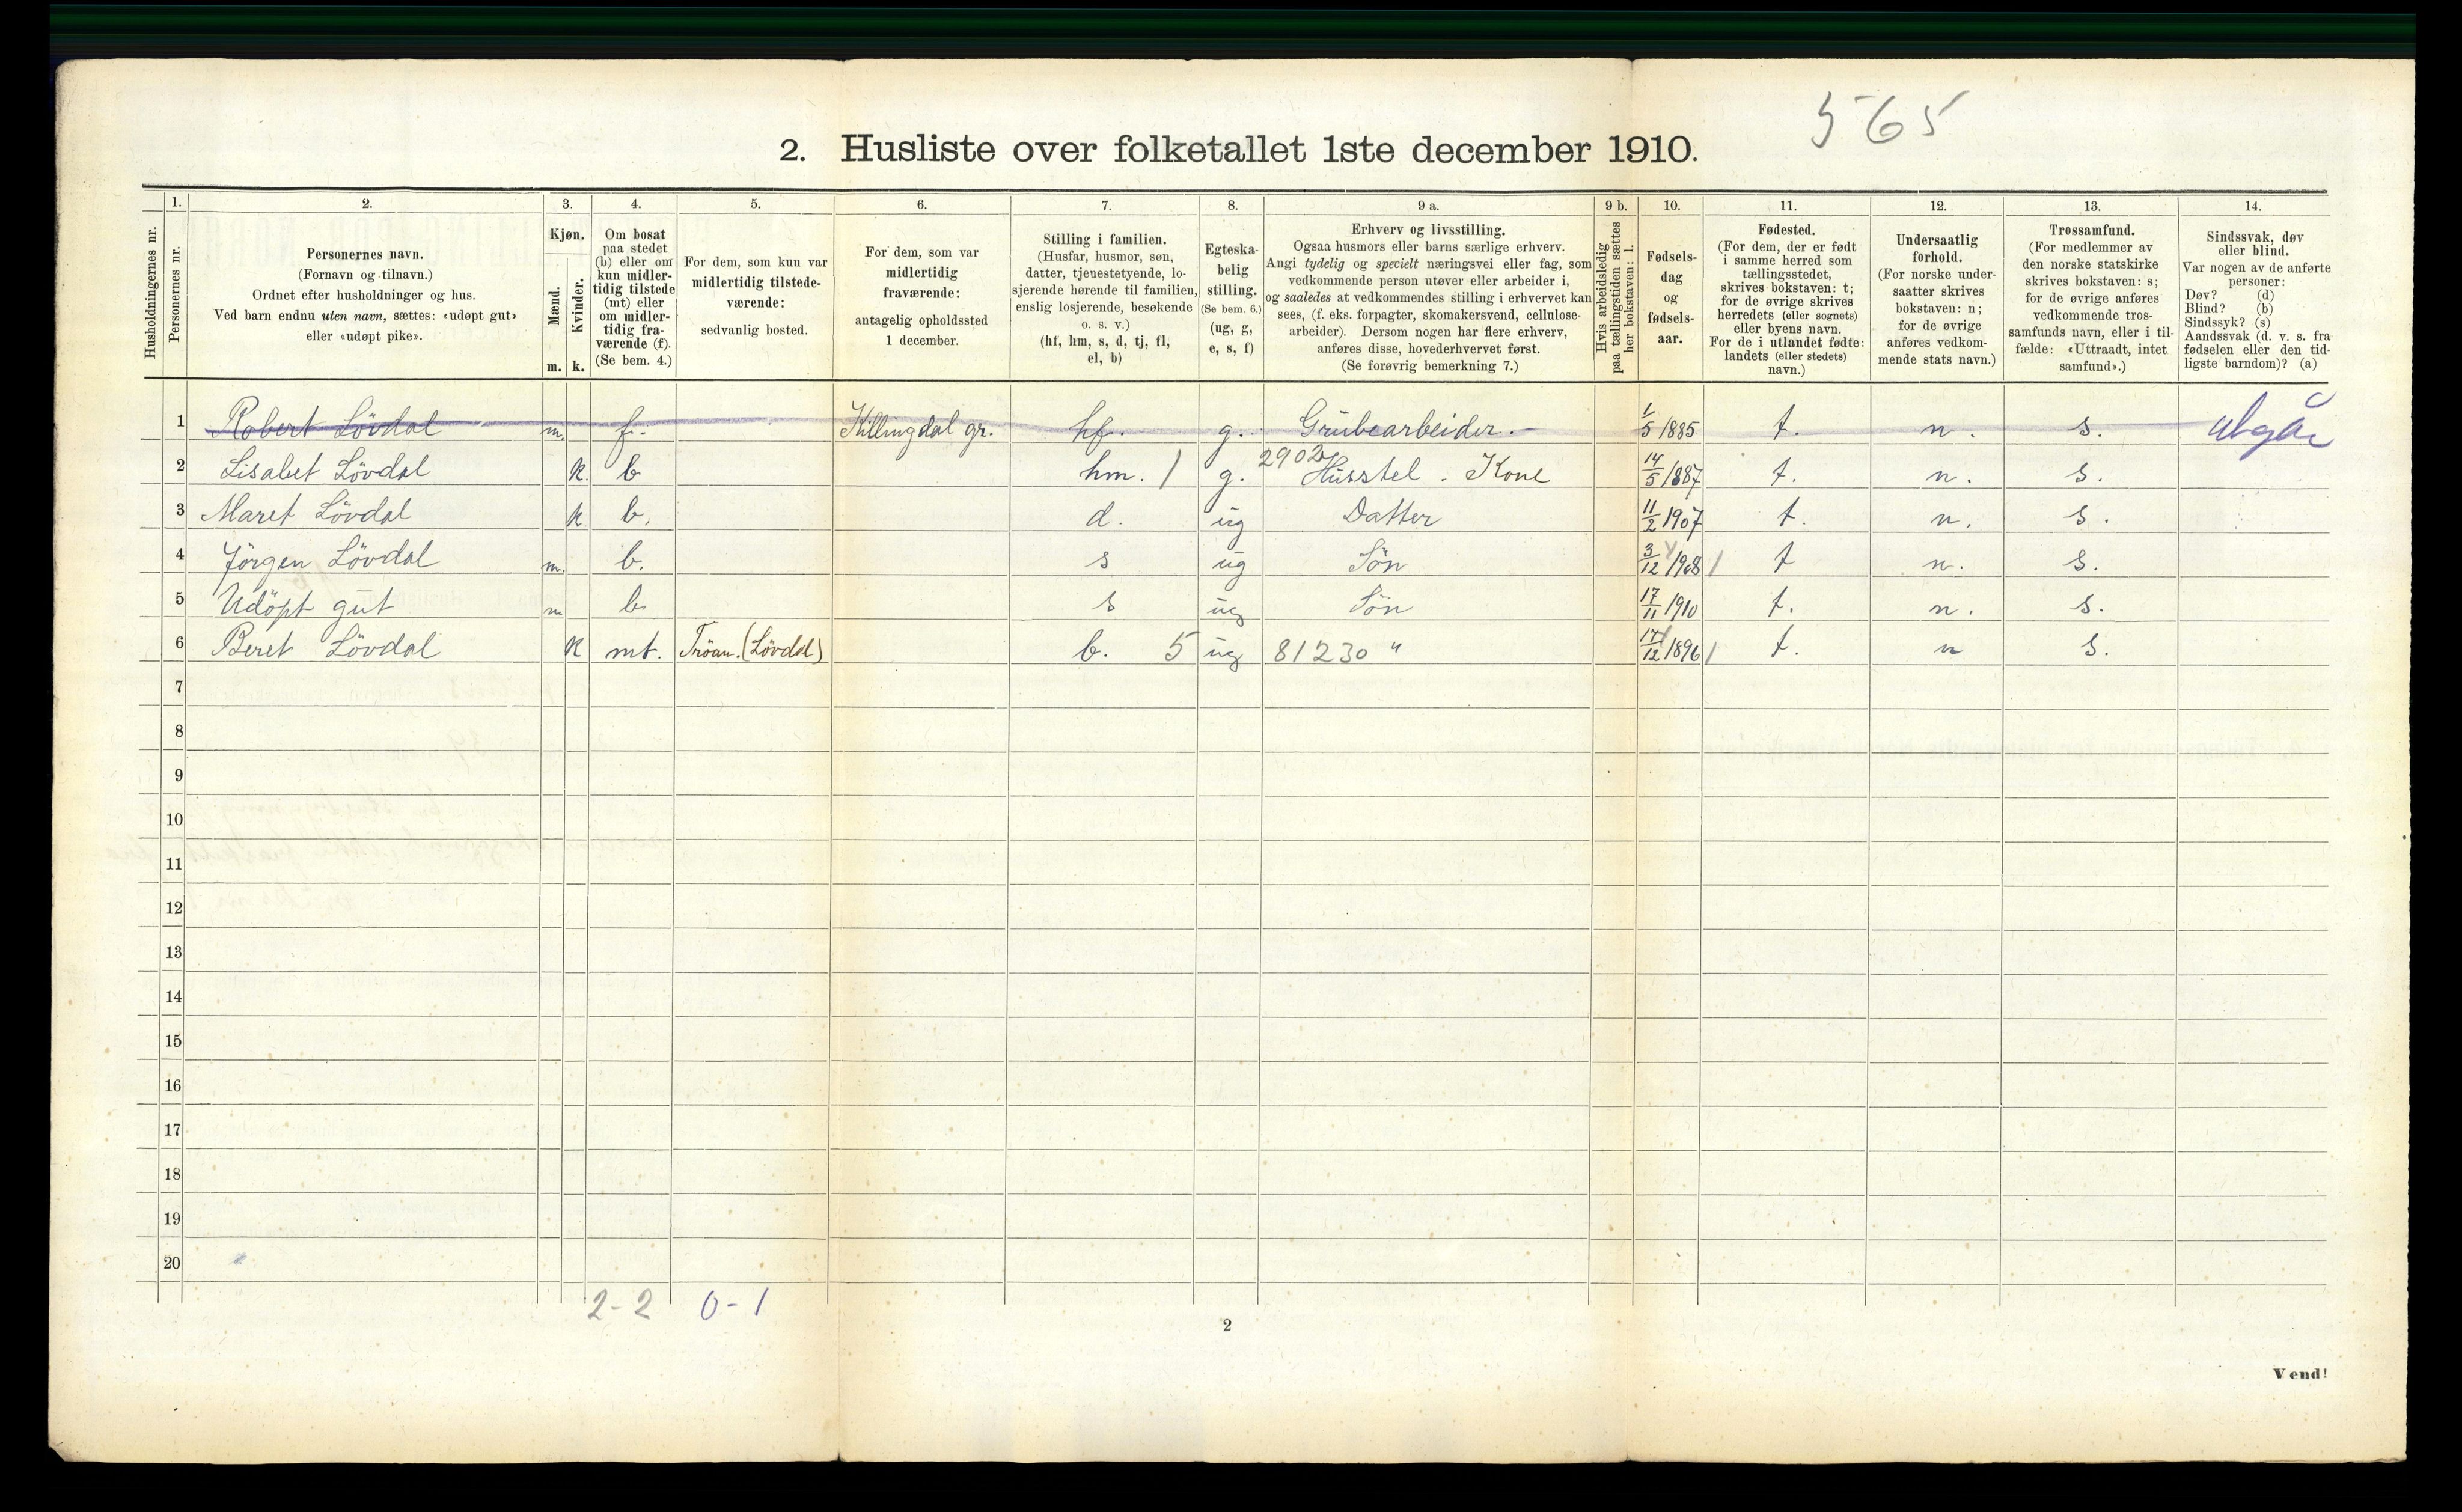 565
2. Husliste over folketallet 1ste december 1910.
Husholdningernes nr.
1.
Personernes nr.
2.
Personernes navn.
(Fornavn og tilnavn.)
Ordnet efter husholdninger og hus.
Ved barn endnu uten navn, sættes: «udøpt gut»
eller «udøpt pike».
3.
Kjøn.
Mænd.
m.
Kvinder.
k.
4.
Om bosat
paa stedet
(b) eller om
kun midler-
tidig tilstede
(mt) eller
om midler-
tidig fra-
værende (f).
(Se bem. 4.)
5.
For dem, som kun var
midlertidig tilstede-
værende:
sedvanlig bosted.
6.
For dem, som var
midlertidig
fraværende:
antagelig opholdssted
1 december.
7.
Stilling i familien.
(Husfar, husmor, søn,
datter, tjenestetyende, lo-
sjerende hørende til familien,
enslig losjerende, besøkende
o. s. v.)
(hf, hm, s, d, tj, fl,
el, b)
8.
Egteska-
belig
stilling.
(Se bem. 6.)
(ug, g,
e, s, f)
9 a.
Erhverv og livsstilling.
Ogsaa husmors eller barns særlige erhverv.
Angi tydelig og specielt næringsvei eller fag, som
vedkommende person utøver eller arbeider i,
og saaledes at vedkommendes stilling i erhvervet kan
sees, (f. eks. forpagter, skomakersvend, cellulose-
arbeider). Dersom nogen har flere erhverv,
anføres disse, hovederhvervet først.
(Se forøvrig bemerkning 7.)
9 b.
Hvis arbeidsledig
paa tællingstiden sættes
her bokstaven: l.
10.
Fødsels-
dag
og
fødsels-
aar.
11.
Fødested.
(For dem, der er født
i samme herred som
tællingsstedet,
skrives bokstaven: t;
for de øvrige skrives
herredets (eller sognets)
eller byens navn.
For de i utlandet fødte:
landets (eller stedets)
navn.)
12.
Undersaatlig
forhold.
(For norske under-
saatter skrives
bokstaven: n;
for de øvrige
anføres vedkom-
mende stats navn.)
13.
Trossamfund.
(For medlemmer av
den norske statskirke
skrives bokstaven: s;
for de øvrige anføres
vedkommende tros-
samfunds navn, eller i til-
fælde: «Uttraadt, intet
samfund».)
14.
Sindssvak, døv
eller blind.
Var nogen av de anførte
personer:
Døv? (d)
Blind? (b)
Sindssyk? (s)
Aandssvak (d. v. s. fra
fødselen eller den tid-
ligste barndom)? (a)
1 Robert Lövdal m. f. Killingdal gr. hf. g. Grubearbeider. 1/5 1885 t. n. s. utgår
2 Lisabet Lövdal k. b hm. / g. 2902 Husstel . Kone 14/5 1887 t. n. s.
3 Maret Lövdal k b. d. ug Datter 11/2 1907 t. n. s.
4 Jörgen Lövdal m. b. s ug Sön 3/12 1908 / t n. s.
5 Udöpt gut m b s ug Sön 17/11 1910 t. n. s.
6 Beret Lövdal k mt. Tröan. (Lövdal) b. 5 ug 81230 " 17/12 1896 / t. n s.
7
8
9
10
11
12
13
14
15
16
17
18
19
20
2-2 0-1
2
Vend!